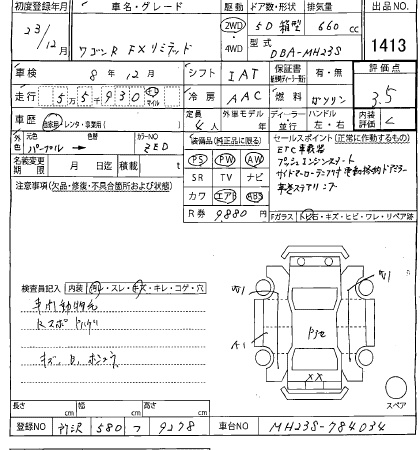 初度登録年月 車名・グレード ドア数・形状 排気量 出品NO.
23/12月 ワゴンR FXリミテッド 2WD ・4WD 5D 箱型 660 cc
型式 DBA-MH23S 1413
車検 8年12月 シフト IAT 保証書 有・無 評価点
走行 5万5千930 キロ マイル 冷房 AAC 燃料 ガソリン 3.5
車歴 自家用・レンタ・事業用( ) 定員 4人 外車モデル ディーラー・並行 ハンドル 左・右 内装評価 C
外色 元色 パープル→ 色替 カラーNO ZED 装備品(純正品に限る) セールスポイント(正常に作動するもの)
名義変更期限 月 日迄 積載 t PS PW AW ETC車載器
注意事項(欠品・修復・不具合箇所および状態) SR TV ナビ プッシュエンジンスタート
カワ エアB ABS サイドマーカーランプ付電動格納ドアミラー
R券 9880円 革巻ステアリング
Fガラス トビ石・キズ・ヒビ・ワレ・リペア跡
検査員記入 内装 汚れ・スレ・キズ・キレ・コゲ・穴
W1 W1
A1
XX
スペア
長さ cm 幅 cm 高さ cm
登録NO 所沢 580 つ 9278 車台NO MH23S-784034